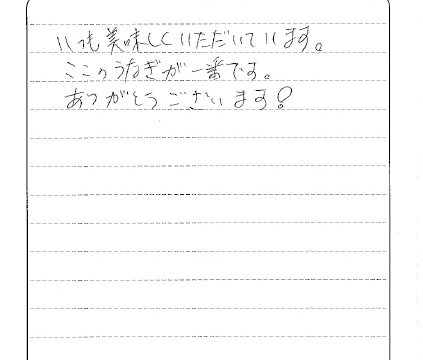 いつも美味しくいただいています。
ここのうなぎが一番です。
ありがとうございます!